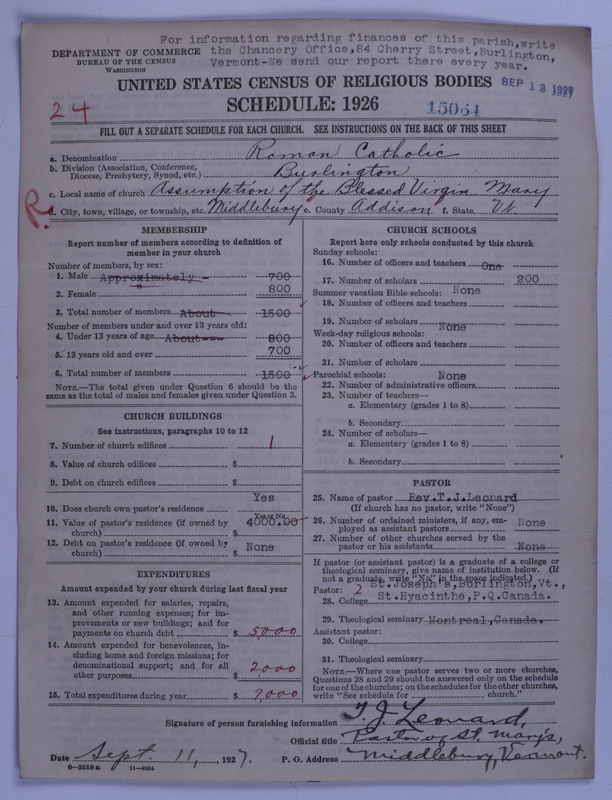 For information regarding finances of this parish, write
the Chancery Office, 84 Cherry Street, Burlington,
Vermont-We send our report there every year.
DEPARTMENT OF COMMERCE
BUREAU OF THE CENSUS
WASHINGTON
UNITED STATES CENSUS OF RELIGIOUS BODIES
SEP 13 1927
24
SCHEDULE: 1926
15064
FILL OUT A SEPARATE SCHEDULE FOR EACH CHURCH. SEE INSTRUCTIONS ON THE BACK OF THIS SHEET
a. Denomination Roman Catholic
b. Division (Association, Conference, Diocese, Presbytery, Synod, etc.) Burlington
c. Local name of church Assumption of the Blessed Virgin Mary
R.
d. City, town, village, or township, etc. Middlebury e. County Addison f. State Vt
MEMBERSHIP
Report number of members according to definition of
member in your church
Number of members, by sex:
1. Male Approximately 700
2. Female " 800
3. Total number of members About 1500
Number of members under and over 13 years old:
4. Under 13 years of age About 800
5. 13 years old and over 700
6. Total number of members 1500
NOTE.—The total given under Question 6 should be the
same as the total of males and females given under Question 3.
CHURCH BUILDINGS
See instructions, paragraphs 10 to 12
7. Number of church edifices 1
8. Value of church edifices $
9. Debt on church edifices $
Yes
10. Does church own pastor's residence
Yes or No
11. Value of pastor's residence (if owned by
church) $ 4000.00
12. Debt on pastor's residence (if owned by
church) $ None
EXPENDITURES
Amount expended by your church during last fiscal year
13. Amount expended for salaries, repairs,
and other running expenses; for im-
provements or new buildings; and for
payments on church debt $ 5000
14. Amount expended for benevolences, in-
cluding home and foreign missions; for
denominational support; and for all
other purposes $ 2000
15. Total expenditures during year $ 7000
CHURCH SCHOOLS
Report here only schools conducted by this church
Sunday schools:
16. Number of officers and teachers One
17. Number of scholars 200
Summer vacation Bible schools: None
18. Number of officers and teachers
19. Number of scholars
Week-day religious schools: None
20. Number of officers and teachers
21. Number of scholars
Parochial schools: None
22. Number of administrative officers
23. Number of teachers—
a. Elementary (grades 1 to 8)
b. Secondary
24. Number of scholars—
a. Elementary (grades 1 to 8)
b. Secondary
PASTOR
25. Name of pastor Rev.T.J.Leonard
(If church has no pastor, write "None")
26. Number of ordained ministers, if any, em-
ployed as assistant pastors None
27. Number of other churches served by the
pastor or his assistants None
If pastor (or assistant pastor) is a graduate of a college or
theological seminary, give name of institution below. (If
not a graduate, write "No" in the space indicated.)
Pastor: 2 St.Joseph's,Burlington,Vt.,
28. College St.Hyacinthe,P.Q.Canada.
29. Theological seminary Montreal,Canada.
Assistant pastor:
30. College
31. Theological seminary
NOTE.—Where one pastor serves two or more churches,
Questions 28 and 29 should be answered only on the schedule
for one of the churches; on the schedules for the other churches,
write "See schedule for church."
Signature of person furnishing information T. J. Leonard,
Official title Pastor of St. Mary's,
Date Sept. 11, 1927. P. O. Address Middlebury, Vermont.
6—5518a 11—9564